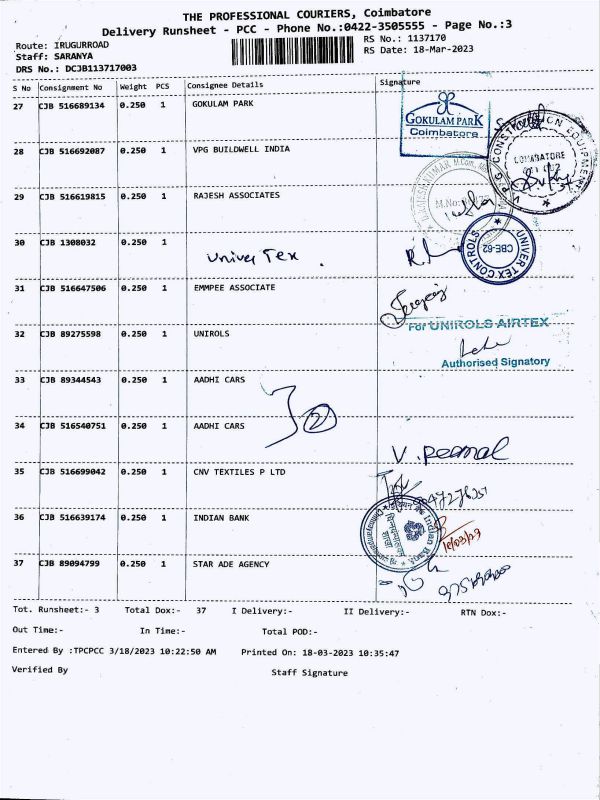 THE PROFESSIONAL COURIERS, Coimbatore
Delivery Runsheet - PCC - Phone No.:0422-3505555 - Page No.:3
Route: IRUGURROAD
RS No.: 1137170
Staff: SARANYA
RS Date: 18-Mar-2023
DRS No.: DCJB113717003
S No Consignment No Weight PCS Consignee Details Signature
27 CJB 516689134 0.250 1 GOKULAM PARK
GOKULAM PARK
Coimbatore
28 CJB 516692087 0.250 1 VPG BUILDWELL INDIA
V.P.G CONSTRUCTION EQUIPMENT
COIMBATORE
29 CJB 516619815 0.250 1 RAJESH ASSOCIATES
M.No:
30 CJB 1308032 0.250 1
Univer Tex .
UNIVER TEX CONTROLS
CBE-62
31 CJB 516647506 0.250 1 EMMPEE ASSOCIATE
32 CJB 89275598 0.250 1 UNIROLS
For UNIROLS AIRTEX
Authorised Signatory
33 CJB 89344543 0.250 1 AADHI CARS
2
34 CJB 516540751 0.250 1 AADHI CARS
V. Perumal
35 CJB 516699042 0.250 1 CNV TEXTILES P LTD
36 CJB 516639174 0.250 1 INDIAN BANK
Indian Bank
18/03/23
37 CJB 89094799 0.250 1 STAR ADE AGENCY
Tot. Runsheet:- 3 Total Dox:- 37 I Delivery:- II Delivery:- RTN Dox:-
Out Time:- In Time:- Total POD:-
Entered By :TPCPCC 3/18/2023 10:22:50 AM Printed On: 18-03-2023 10:35:47
Verified By Staff Signature